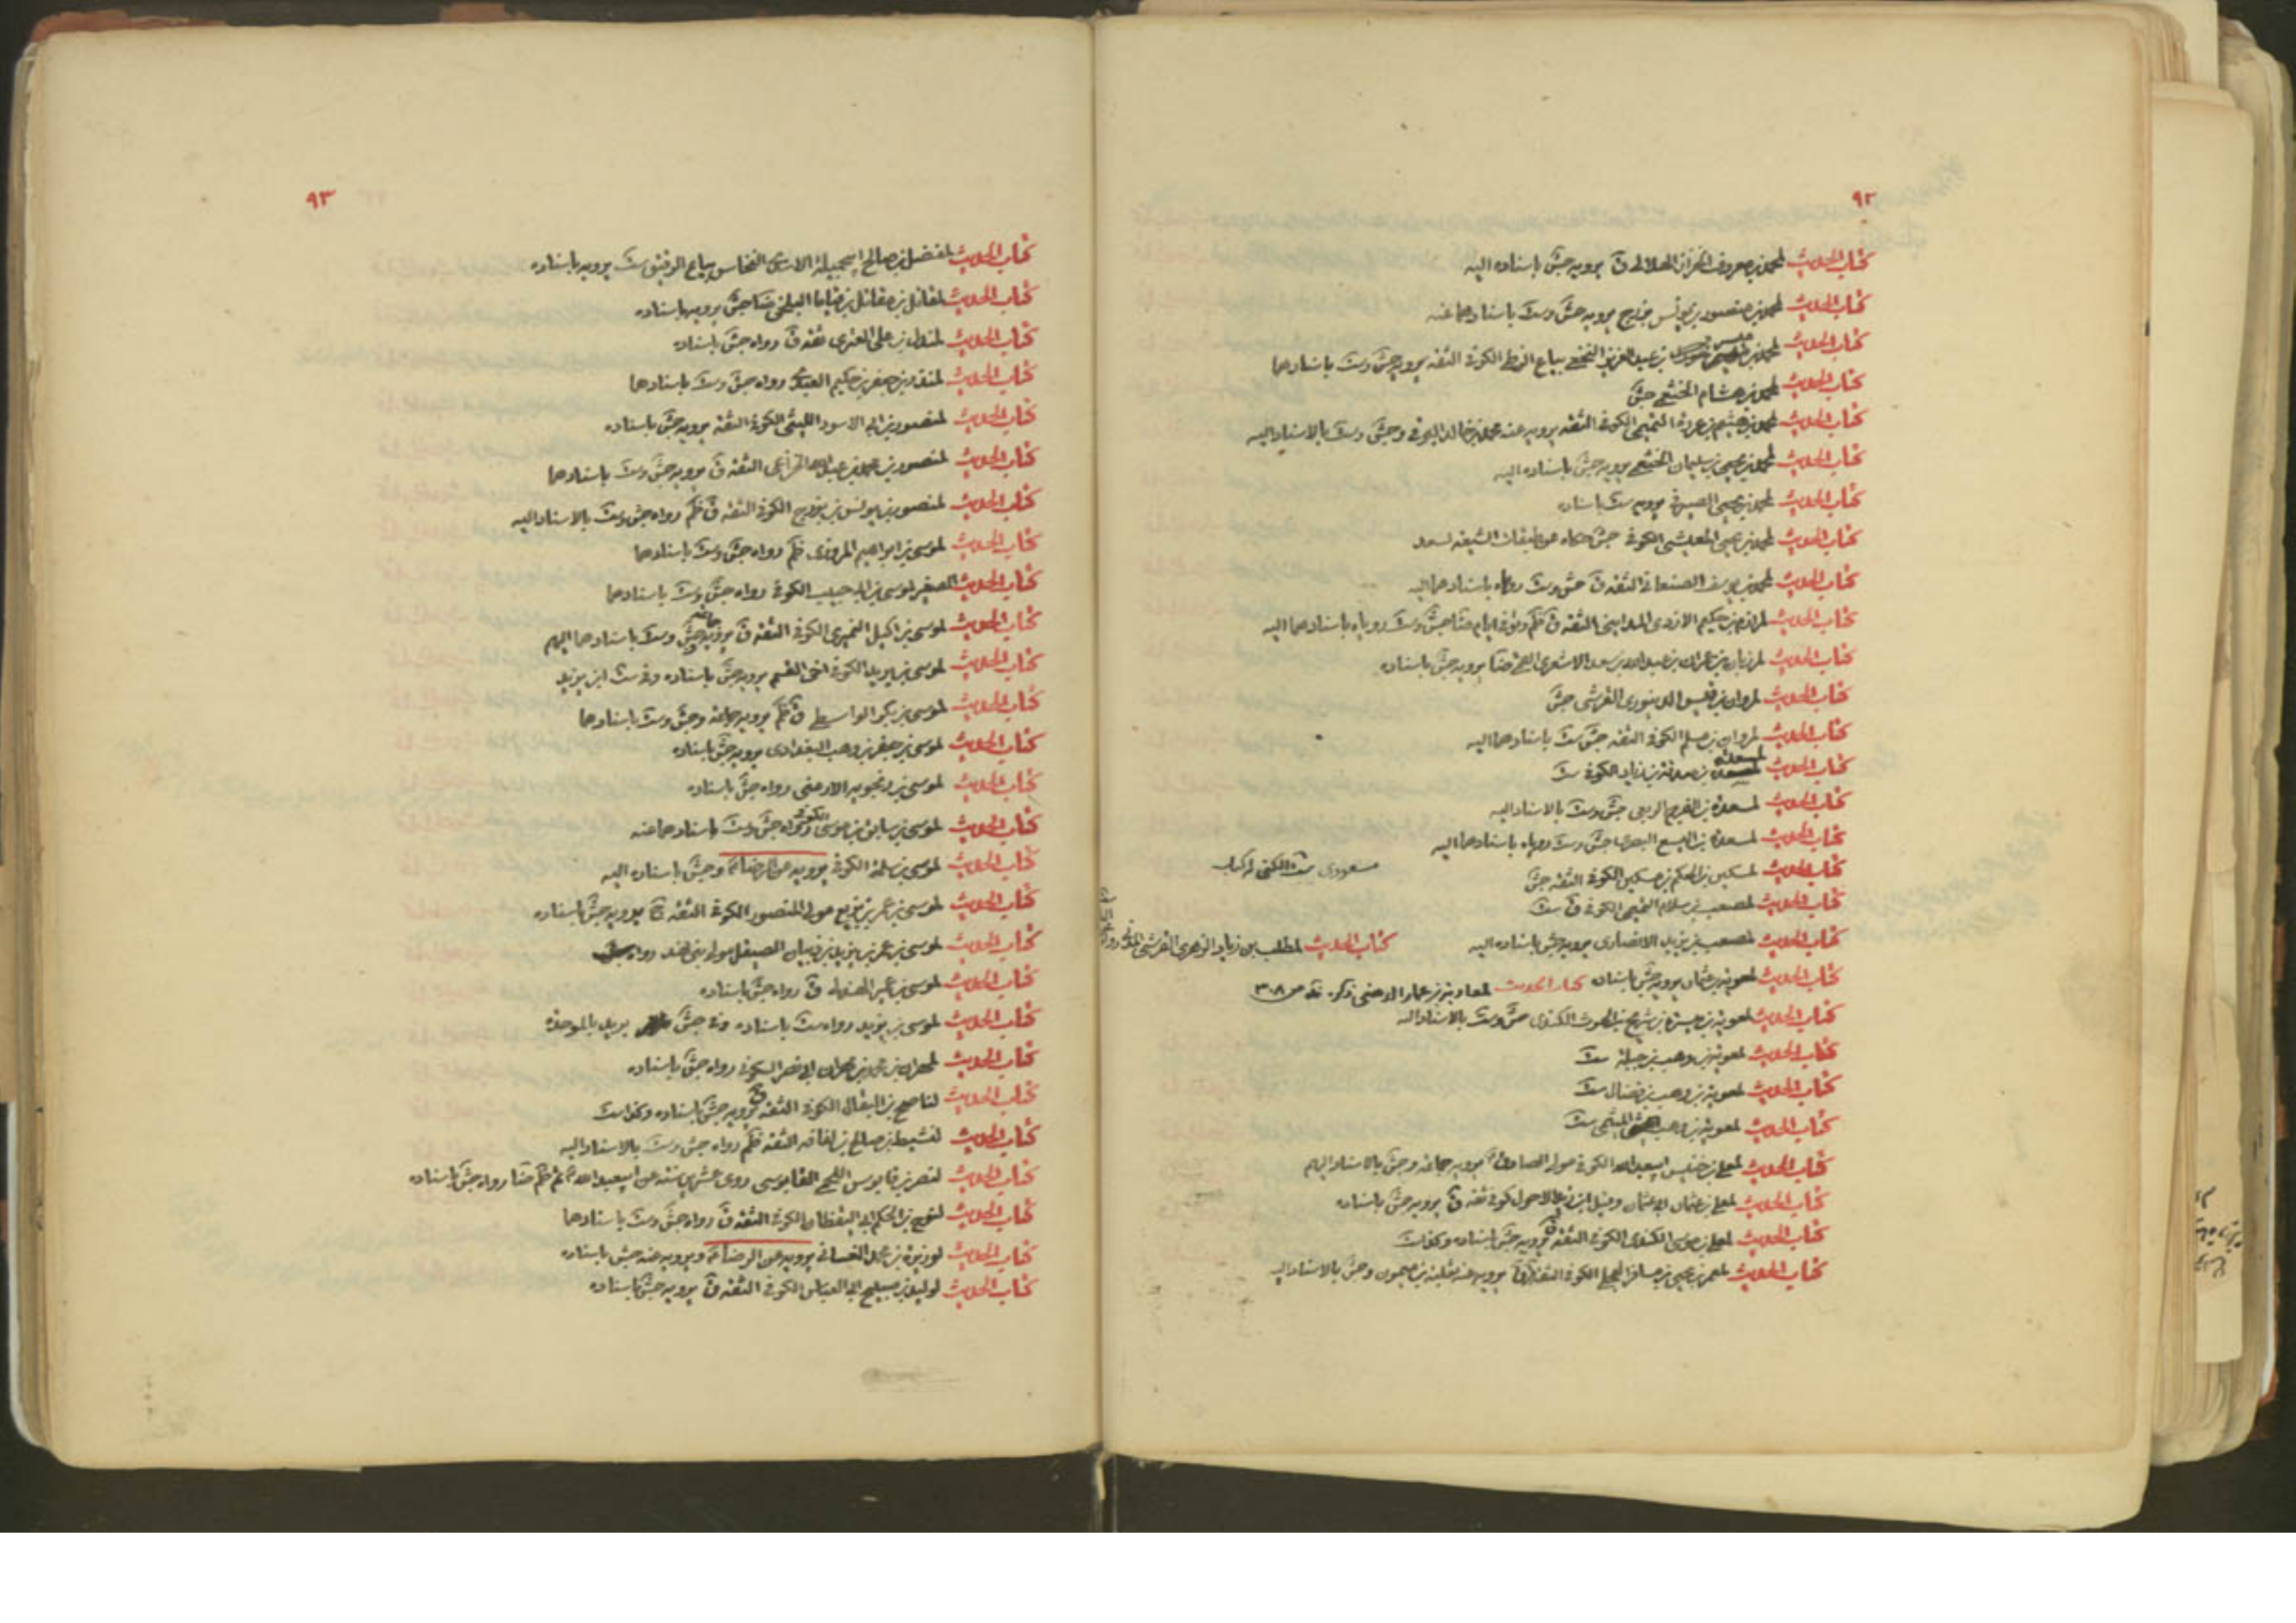 ٩٢
كتاب الحديث لمحمد بن معروف الخزاز الهلالي ق يرويه جش باسناده اليه
كتاب الحديث لمحمد بن منصور بن يونس بزرج يرويه جش وست باسنادهما عنه
كتاب الحديث لمحمد بن بن عبدالعزيز النخعي بياع الزطي الكوفي الثقه يرويه جش وست باسنادهما
كتاب الحديث لمحمد بن هشام الخثعمي جش
كتاب الحديث لمحمد بن هيثم بن عروة التميمي الكوفي الثقه يرويه عنه محمد بن خالد البرقي وجش وست بالاسناد اليه
كتاب الحديث لمحمد بن يحيى بن سليمان الخثعمي يرويه جش باسناده اليه
كتاب الحديث لمحمد بن يحيى الصيرفي يرويه ست باسناده
كتاب الحديث لمحمد بن يحيى المعيشي الكوفي جش حكاه عن طبقات الشيعه لسعد
كتاب الحديث لمحمد بن يوسف الصنعاني الثقه ق جش وست رواه باسنادهما اليه
كتاب الحديث لمرازم بن حكيم الازدي المدايني الثقه ق ظم وتوفي ايام ضا جش وست روياه باسنادهما اليه
كتاب الحديث لمرزبان بن عمران بن عبدالله بن سعد الاشعري القمي ضا يرويه جش باسناده
كتاب الحديث لمروان بن قيس الدينوري القرشي جش
كتاب الحديث لمروان بن مسلم الكوفي الثقه جش ست باسنادهما اليه
كتاب الحديث لمسعدة بن صدقة بن زياد الكوفي ست
كتاب الحديث لمسعدة بن الفرج الربعي جش وست بالاسناد اليه
كتاب الحديث لمسعدة بن اليسع البصري جش وست روياه باسنادهما اليه
كتاب الحديث لمسكين بن الحكم بن مسكين الكوفي الثقه جش
مسعودي ست الكنى له كتاب
كتاب الحديث لمصعب بن سلام التميمي الكوفي ق ست
كتاب الحديث لمصعب بن يزيد الانصاري يرويه جش باسناده اليه
كتاب الحديث لمطلب بن زياد الزهري القرشي المدني
كتاب الحديث لمعوية بن عثمان يرويه جش باسناده كتاب الحديث لمعاوية بن عمار الدهني ذكر ٣٠٨
كتاب الحديث لمعوية بن ميسرة بن شريح بن الحرث الكندي جش وست بالاسناد اليه
كتاب الحديث لمعوية بن وهب بن جبلة ست
كتاب الحديث لمعوية بن وهب بن فضال ست
كتاب الحديث لمعوية بن وهب الميثمي ست
كتاب الحديث لمعلى بن خنيس ابي عبدالله الكوفي مولى الصادق يرويه جماعة وجش بالاسناد اليهم
كتاب الحديث لمعلى بن عثمان ابي عثمان وقيل ابن زيد الاحول كوفي ثقه ق يرويه جش باسناده
كتاب الحديث لمعلى بن موسى الكندي الكوفي الثقه ق يرويه جش باسناده وكذا ست
كتاب الحديث لمعمر بن يحيى بن مسافر العجلي الكوفي الثقه ق يرويه عنه ثعلبة بن ميمون وجش بالاسناد اليه
٩٣
كتاب الحديث لمفضل بن صالح ابي جميلة الاسدي النخاس بياع الرقيق ست يرويه باسناده
كتاب الحديث لمقاتل بن مقاتل بن قياما البلخي ضا جش يرويه باسناده
كتاب الحديث لمندل بن علي العنزي ثقه ق رواه جش باسناده
كتاب الحديث لمنذر بن جيفر بن حكيم العبدي رواه جش وست باسنادهما
كتاب الحديث لمنصور بن ابي الاسود الليثي الكوفي الثقه يرويه جش باسناده
كتاب الحديث لمنصور بن محمد بن عبدالله الخزاعي الثقه ق يرويه جش وست باسنادهما
كتاب الحديث لمنصور بن يونس بن بزرج الكوفي الثقه ق ظم رواه جش وست بالاسناد اليه
كتاب الحديث لموسى بن ابراهيم المروزي ظم رواه جش وست باسنادهما
كتاب الحديث الصغير لموسى بن ابي حبيب الكوفي رواه جش وست باسنادهما
كتاب الحديث لموسى بن اكيل النميري الكوفي الثقه ق يرويه جماعة جش وست باسنادهما اليهم
كتاب الحديث لموسى بن بريد الكوفي اخي القسم يرويه جش باسناده وفي ست ابن يزيد
كتاب الحديث لموسى بن بكر الواسطي ق ظم يرويه جماعة وجش وست باسنادهما
كتاب الحديث لموسى بن جعفر بن وهب البغدادي يرويه جش باسناده
كتاب الحديث لموسى بن رنجويه الارمني رواه جش باسناده
كتاب الحديث لموسى بن سابق بن موسى الكوفي رواه جش وست باسنادهما عنه
كتاب الحديث لموسى بن سلمة الكوفي يرويه عن الرضا وجش باسناده اليه
كتاب الحديث لموسى بن عمر بن بزيع مولى المنصور الكوفي الثقه يرويه جش باسناده
كتاب الحديث لموسى بن عمر بن يزيد بن ذبيان الصيقل مولى بني نهد رواه جش
كتاب الحديث لموسى بن عمير الهذلي ق رواه جش باسناده
كتاب الحديث لموسى بن يزيد رواه ست باسناده وفي جش بريد بالموحدة
كتاب الحديث لمهران بن محمد بن مهران ابي نصر السكوني رواه جش باسناده
كتاب الحديث لناصح بن البقال الكوفي الثقه ق يرويه جش باسناده وكذا ست
كتاب الحديث لنشيط بن صالح بن لفافة الثقه ظم رواه جش وست بالاسناد اليه
كتاب الحديث لنصر بن قابوس اللخمي القابوسي روى عشرين سنة عن ابي عبدالله ثم ظم ضا رواه جش باسناده
كتاب الحديث لنوح بن الحكم ابي اليقظان الكوفي الثقه ق رواه جش وست باسنادهما
كتاب الحديث لوريزة بن محمد الغساني يرويه عن الرضا ويرويه عنه جش باسناده
كتاب الحديث لوليد بن صبيح ابي العباس الكوفي الثقه ق يرويه جش باسناده